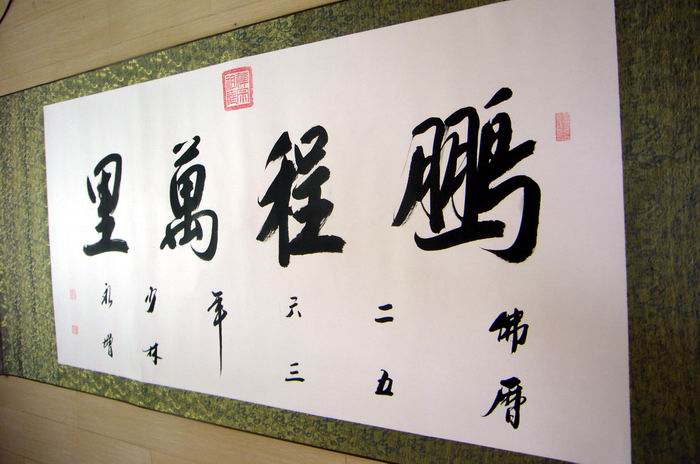 鵬程萬里
佛曆
二五
六三
年
少林
永增